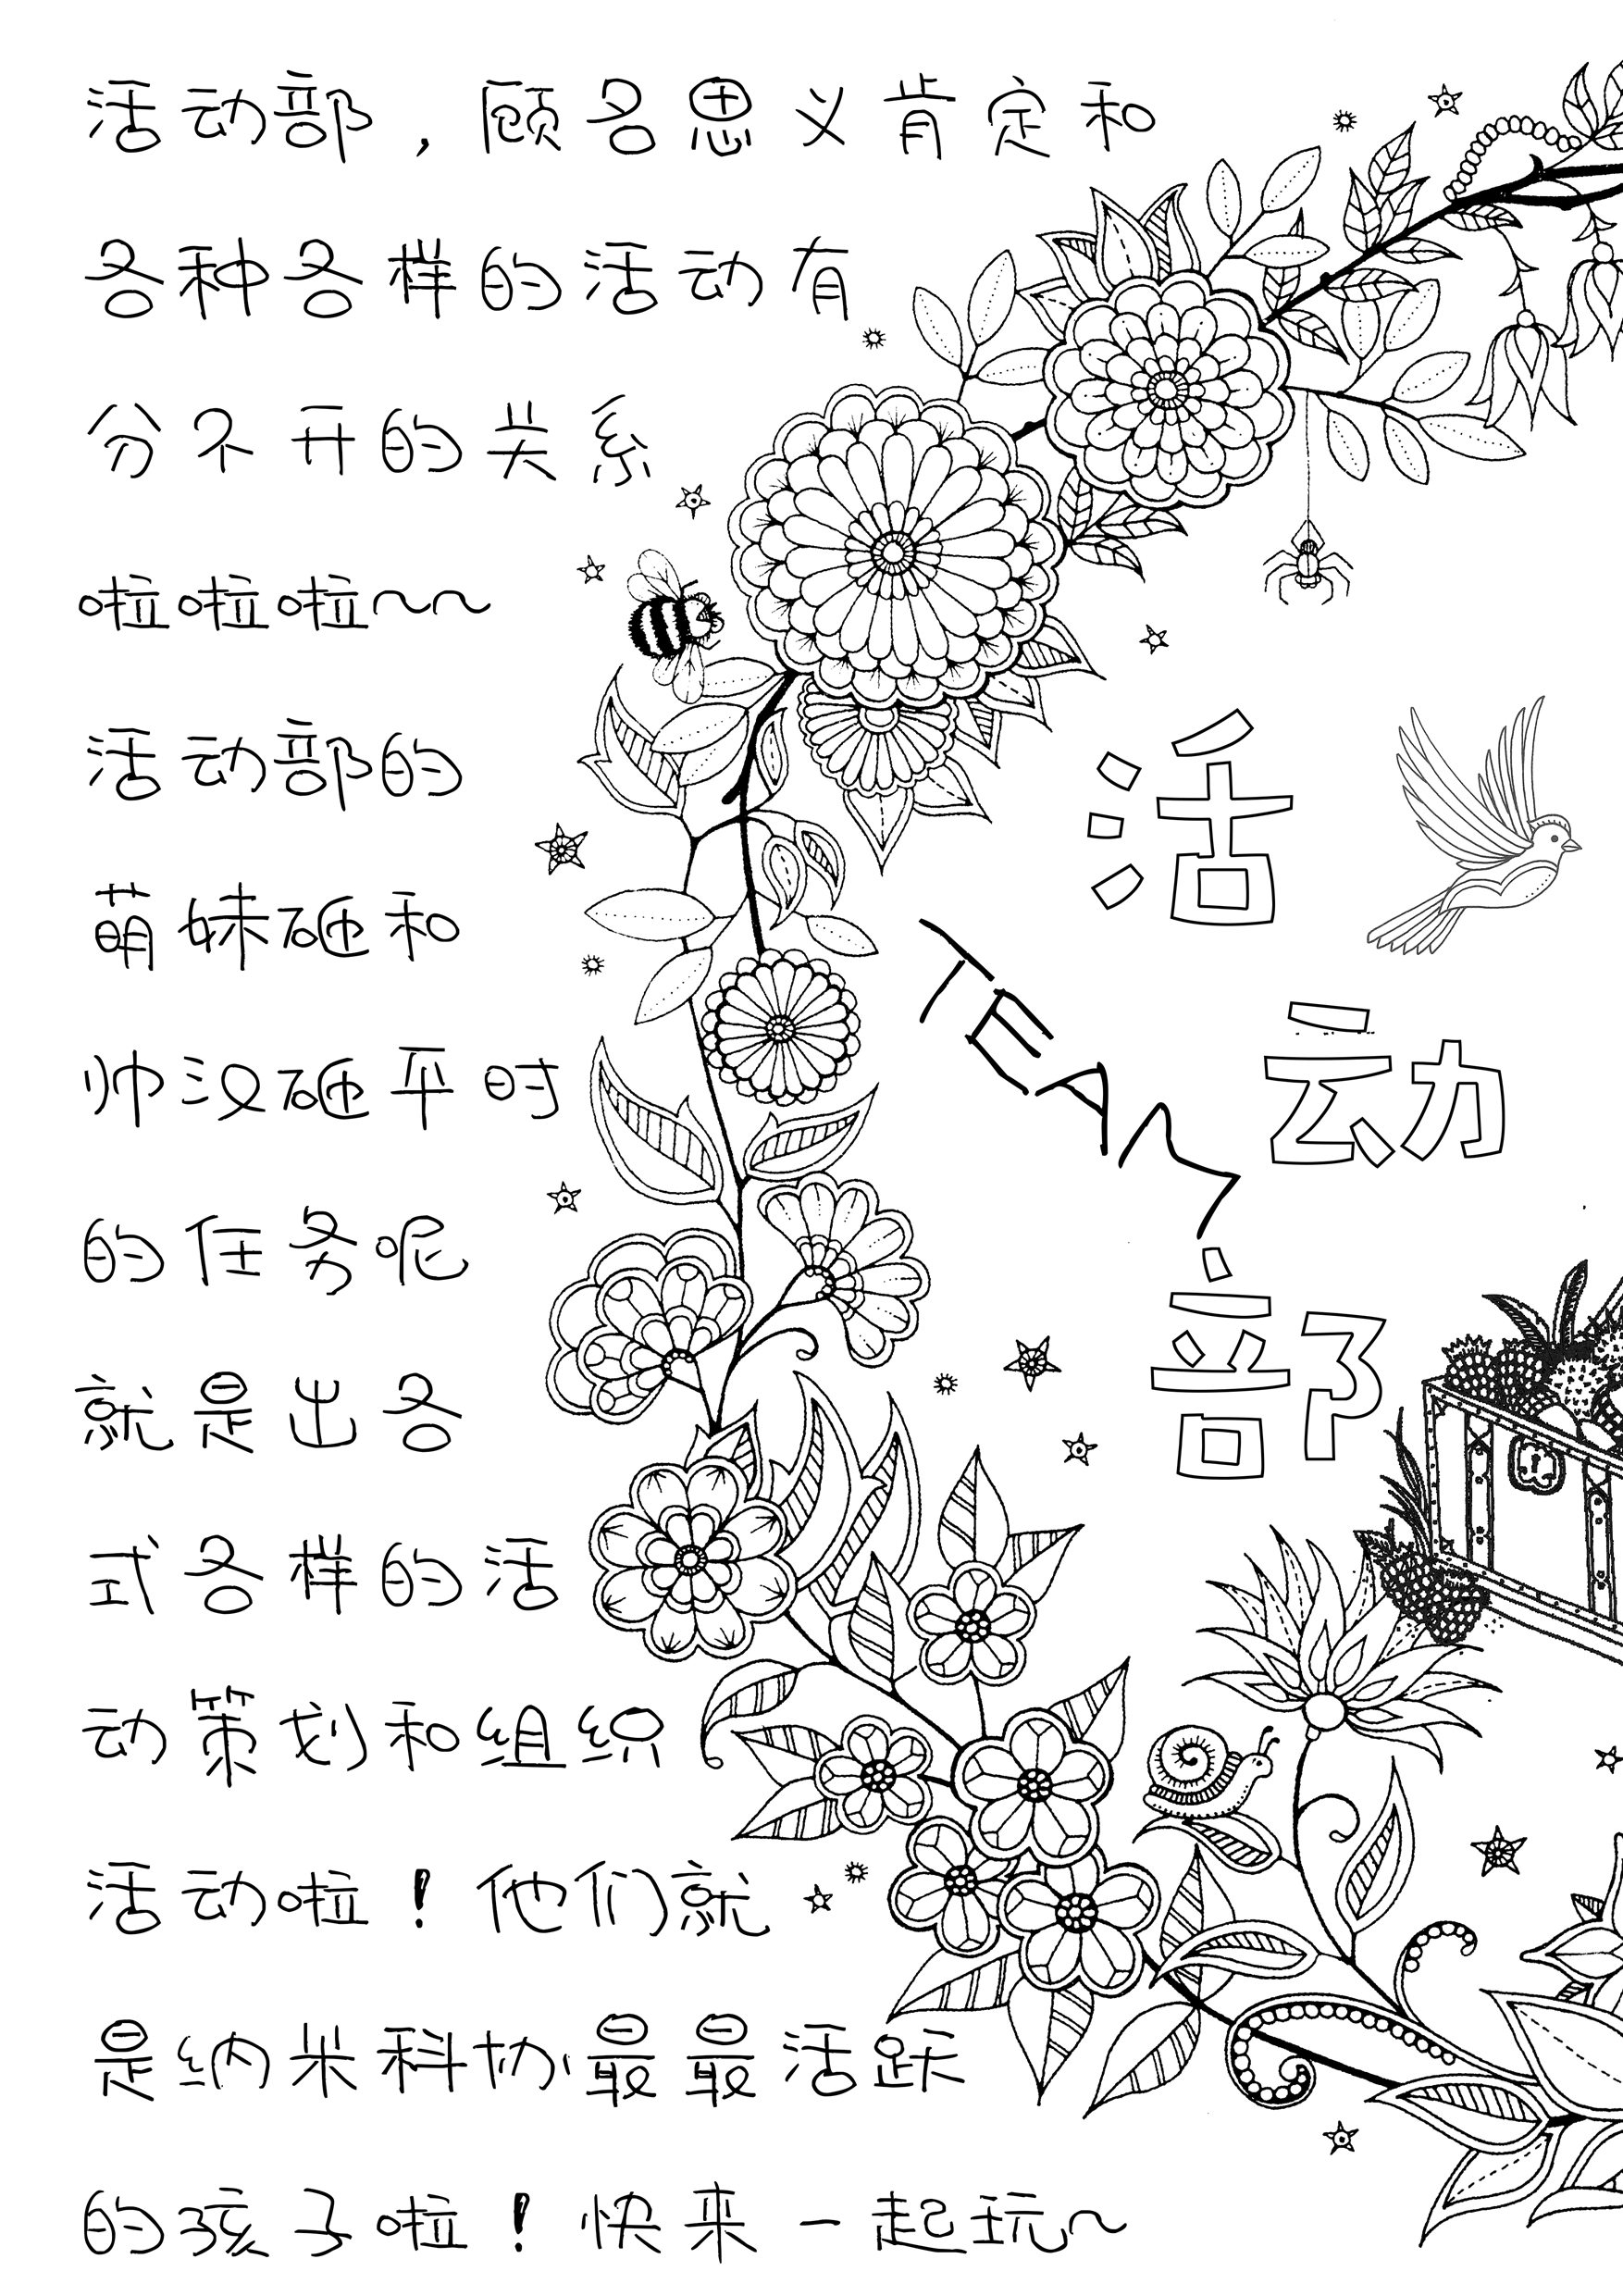 活动部，顾名思义肯定和
各种各样的活动有
分不开的关系
啦啦啦～～
活动部的
萌妹砸和
帅汉砸平时
的任务呢
就是出各
式各样的活
动策划和组织
活动啦！他们就
是纳米科协最最活跃
的孩子啦！快来一起玩～
活
动
部
TEAM